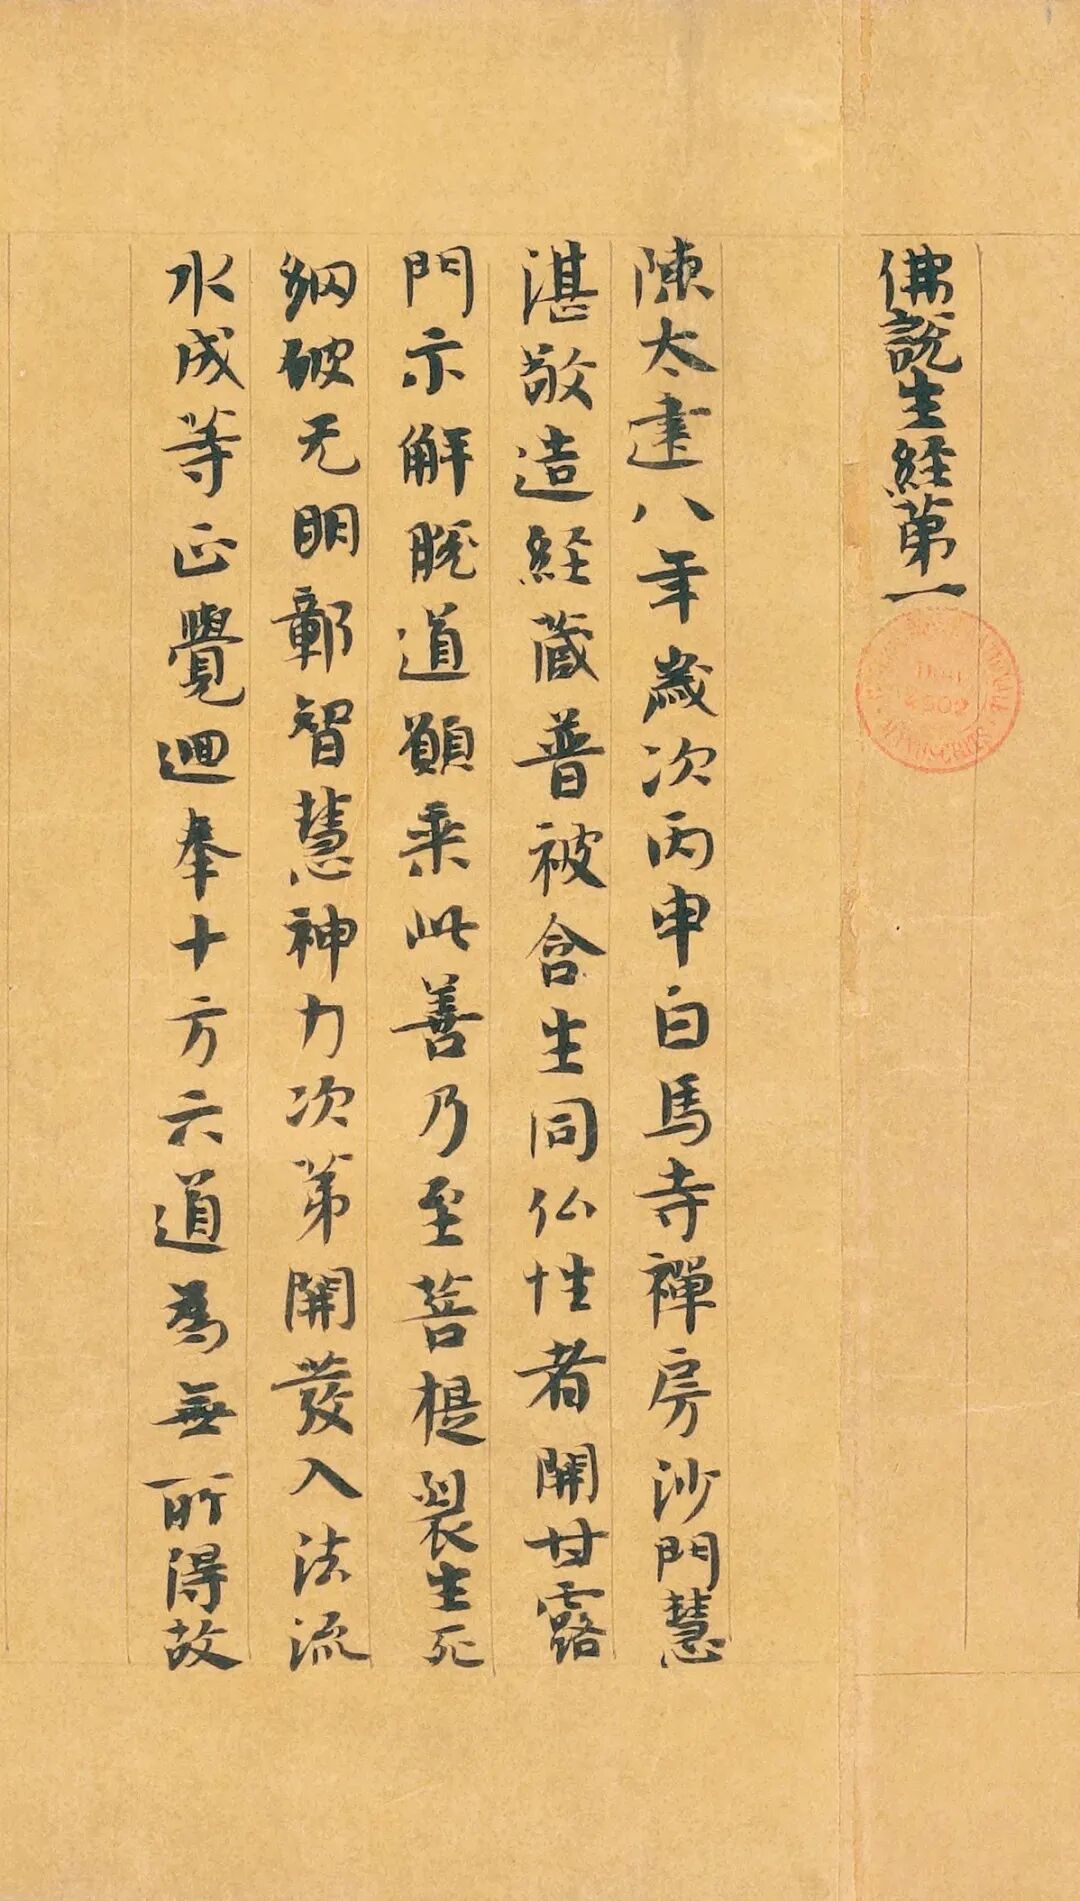 佛說生經第一
陳太建八年歲次丙申白馬寺禪房沙門慧
湛敬造經藏普被含生同仏性者開甘露
門示解脫道願乘此善乃至菩提裂生死
網破无明鄣智慧神力次第開發入法流
水成等正覺迴奉十方六道為無所得故